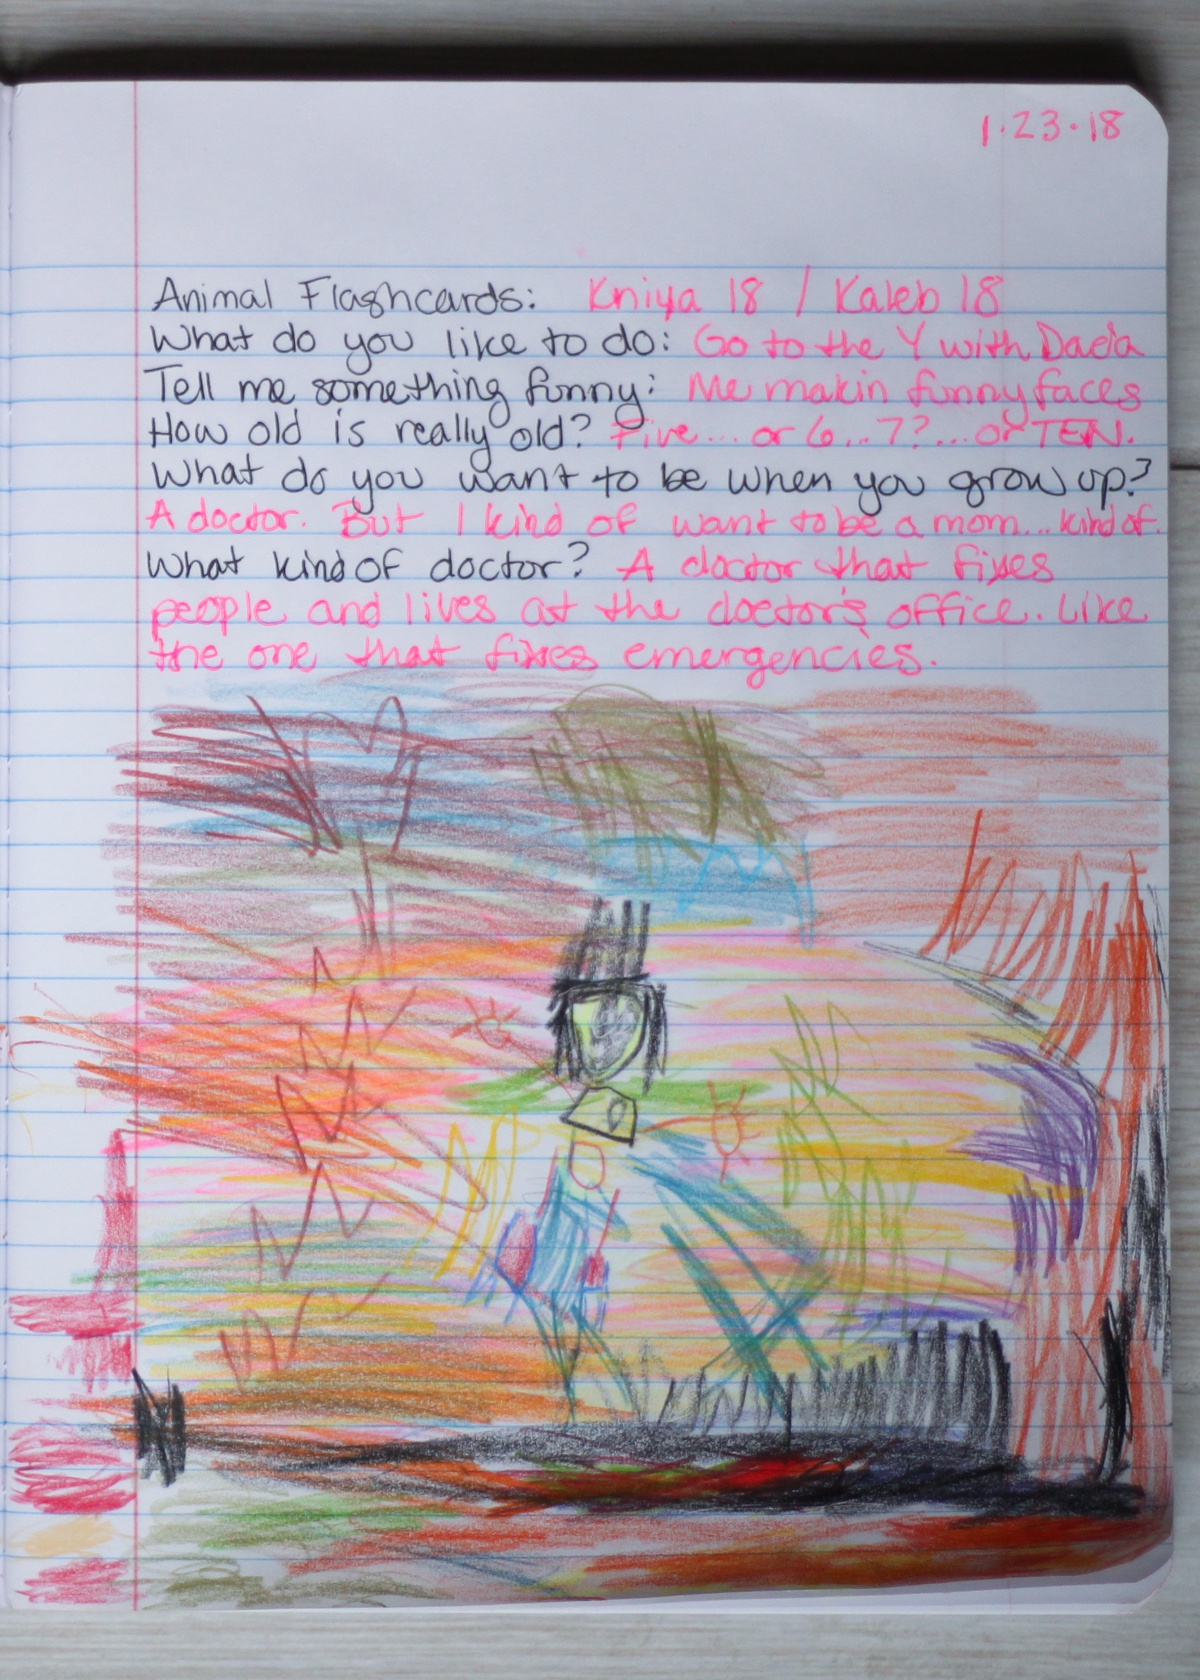 1.23.18
Animal Flashcards: Kniya 18 / Kaleb 18
What do you like to do: Go to the Y with Dada
Tell me something funny: Me makin funny faces
How old is really old? Five... or 6...7?... or TEN.
What do you want to be when you grow up?
A doctor. But I kind of want to be a mom... kind of.
What kind of doctor? A doctor that fixes
people and lives at the doctor's office. Like
the one that fixes emergencies.